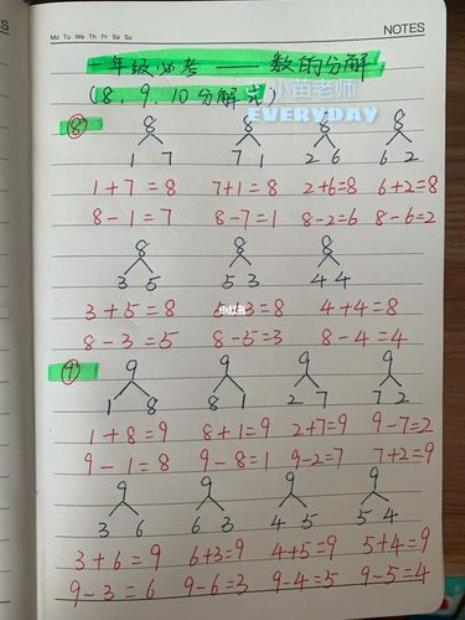 NOTES
Mo Tu We Th Fr Sa Su
一年级必考——数的分解
(8、9、10分解式)
小苗老师
EVERYDAY
⑧ 8 8 8 8
1 7 7 1 2 6 6 2
1+7=8 7+1=8 2+6=8 6+2=8
8-1=7 8-7=1 8-2=6 8-6=2
8 8 8
3 5 5 3 4 4
3+5=8 5+3=8 4+4=8
小红书
8-3=5 8-5=3 8-4=4
⑨ 9 9 9 9
1 8 8 1 2 7 7 2
1+8=9 8+1=9 2+7=9 9-7=2
9-1=8 9-8=1 9-2=7 7+2=9
9 9 9 9
3 6 6 3 4 5 5 4
3+6=9 6+3=9 4+5=9 5+4=9
9-3=6 9-6=3 9-4=5 9-5=4